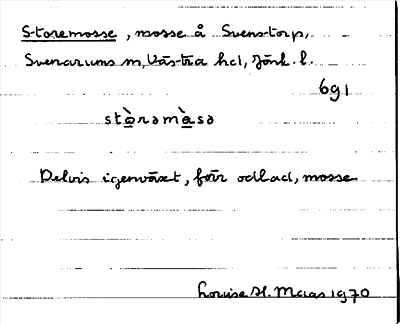 Storemosse, mosse å Svenstorp,
Svenarums sn, Västra hd, Jönk. l.
691
stàrəmàsə
Delvis igenväxt, förr odlad, mosse
Louise H. Maas 1970